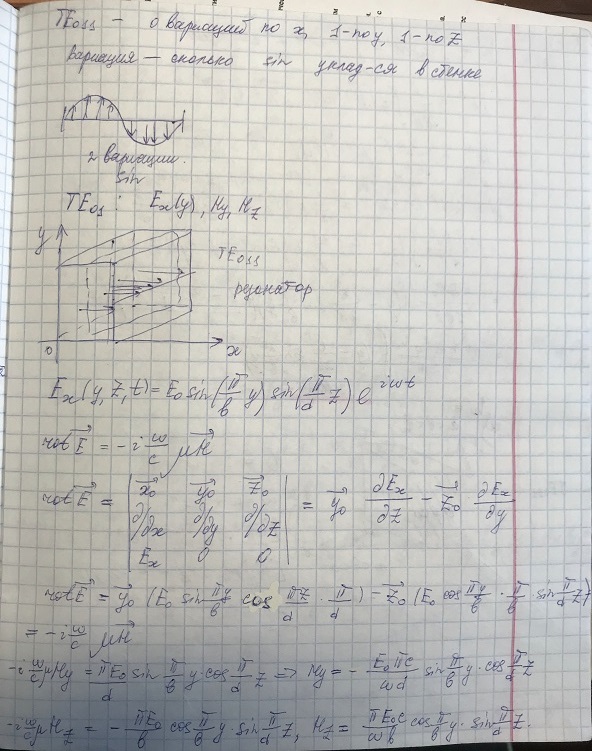 TE₀₁₁ — 0 вариаций по x, 1-по y, 1-по z
Вариация — сколько sin уклад-ся в стенке
2 вариации.
sin
TE₀₁ : Eₓ(y), Hy, Hz
y
TE₀₁₁
резонатор
0 x
Eₓ(y, z, t) = E₀ sin(π/b y) sin(π/d z) e^{iωt}
rot E⃗ = -i ω/c μH⃗
rot E⃗ = | x⃗₀ y⃗₀ z⃗₀ ; ∂/∂x ∂/∂y ∂/∂z ; Eₓ 0 0 | = y⃗₀ ∂Eₓ/∂z - z⃗₀ ∂Eₓ/∂y
rot E⃗ = y⃗₀ (E₀ sin πy/b cos πz/d · π/d) - z⃗₀ (E₀ cos πy/b · π/b sin π/d z)
= -i ω/c μH⃗
-i ω/c μHy = πE₀/d sin π/b y · cos π/d z => Hy = - E₀πc/ωd sin π/b y · cos π/d z
-i ω/c μHz = - πE₀/b cos π/b y sin π/d z, Hz = πE₀c/ωb cos π/b y · sin π/d z.